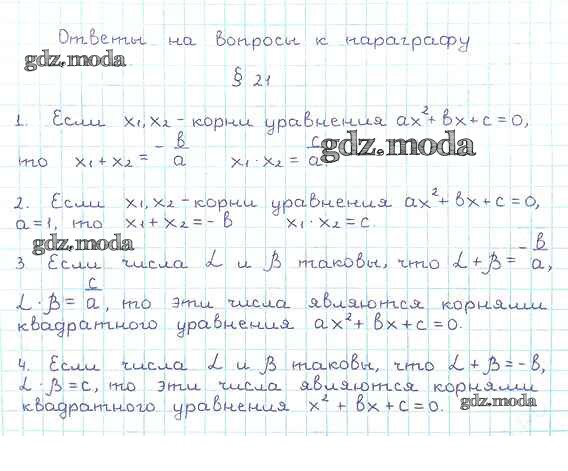 Ответы на вопросы к параграфу
gdz.moda
§ 21
1. Если x₁, x₂ - корни уравнения ax² + bx + c = 0,
то x₁ + x₂ = -b/a x₁ · x₂ = c/a.
gdz.moda
2. Если x₁, x₂ - корни уравнения ax² + bx + c = 0,
a = 1, то x₁ + x₂ = - b x₁ · x₂ = c.
gdz.moda
3 Если числа α и β таковы, что α + β = -b/a,
α · β = c/a, то эти числа являются корнями
квадратного уравнения ax² + bx + c = 0.
4. Если числа α и β таковы, что α + β = - b,
α · β = c, то эти числа являются корнями
квадратного уравнения x² + bx + c = 0.
gdz.moda